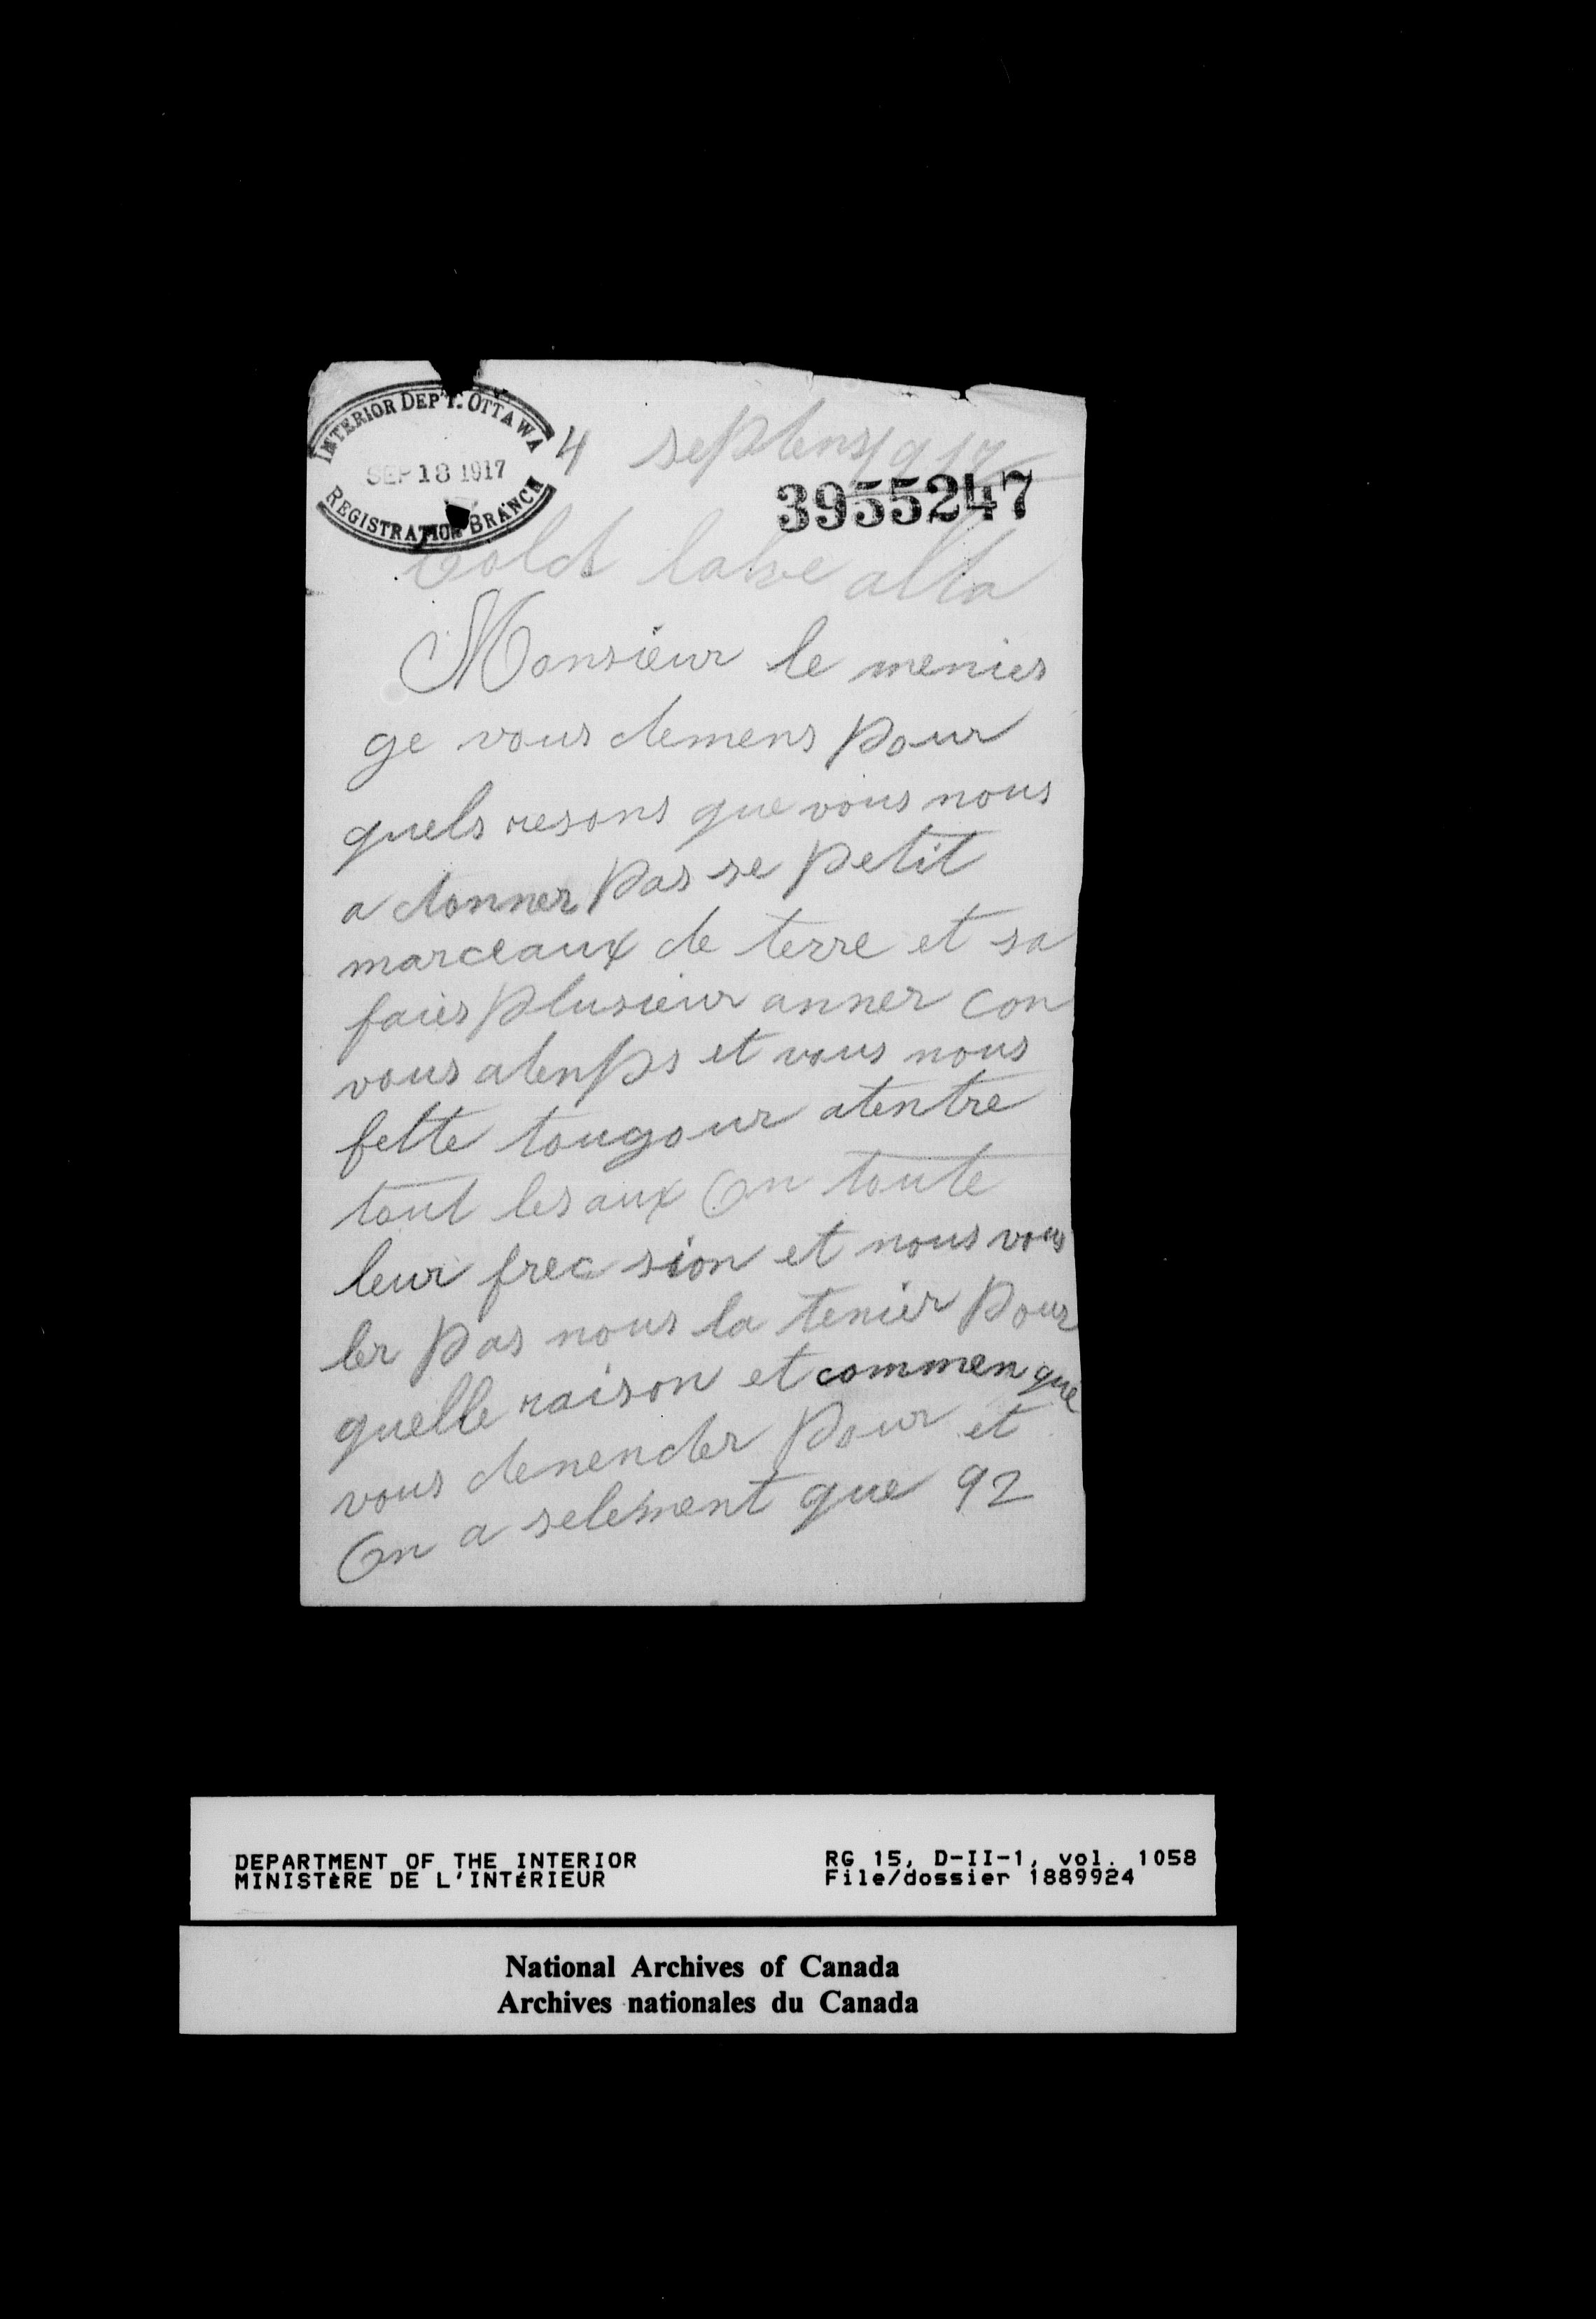 INTERIOR DEPT. OTTAWA
SEP 18 1917
REGISTRATION BRANCH
4 septems 1917
3955247
Cold lake alta
Monsieur le menies
ge vous demens pour
quels resons que vous nous
a donner pas se petit
marceaux de terre et sa
faies plusieur anner con
vous atenps et vous nous
fette tougour atentre
tout les aux On toute
leur frec sion et nous vous
ler pas nous la tenier pour
quelle raison et commen que
vous denender pour et
On a selement que 92
DEPARTMENT OF THE INTERIOR
MINISTÈRE DE L'INTÉRIEUR
RG 15, D-II-1, vol. 1058
File/dossier 1889924
National Archives of Canada
Archives nationales du Canada